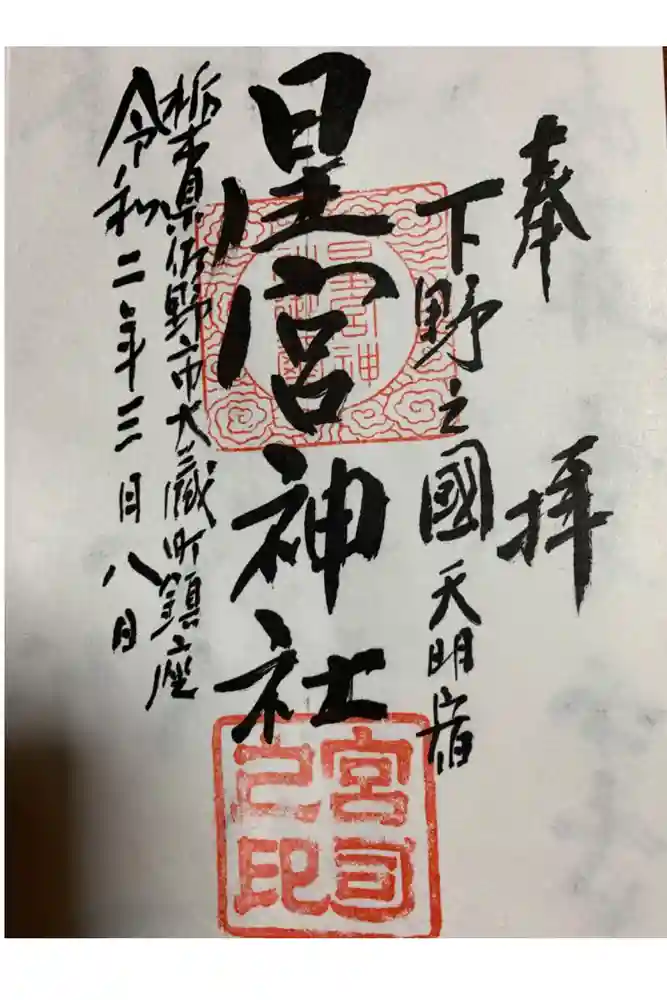 奉拝
下野之國 天明宿
星宮神社
栃木県佐野市大蔵町鎮座
令和二年三月八日
星宮神社
宮司之印